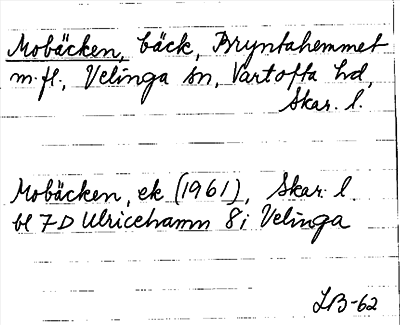 Mobäcken, bäck, Bryntahemmet
m.fl., Velinga sn, Vartofta hd,
Skar. l.
Mobäcken, ek (1961), Skar. l.
bl 7D Ulricehamn 8i Velinga
LB-62